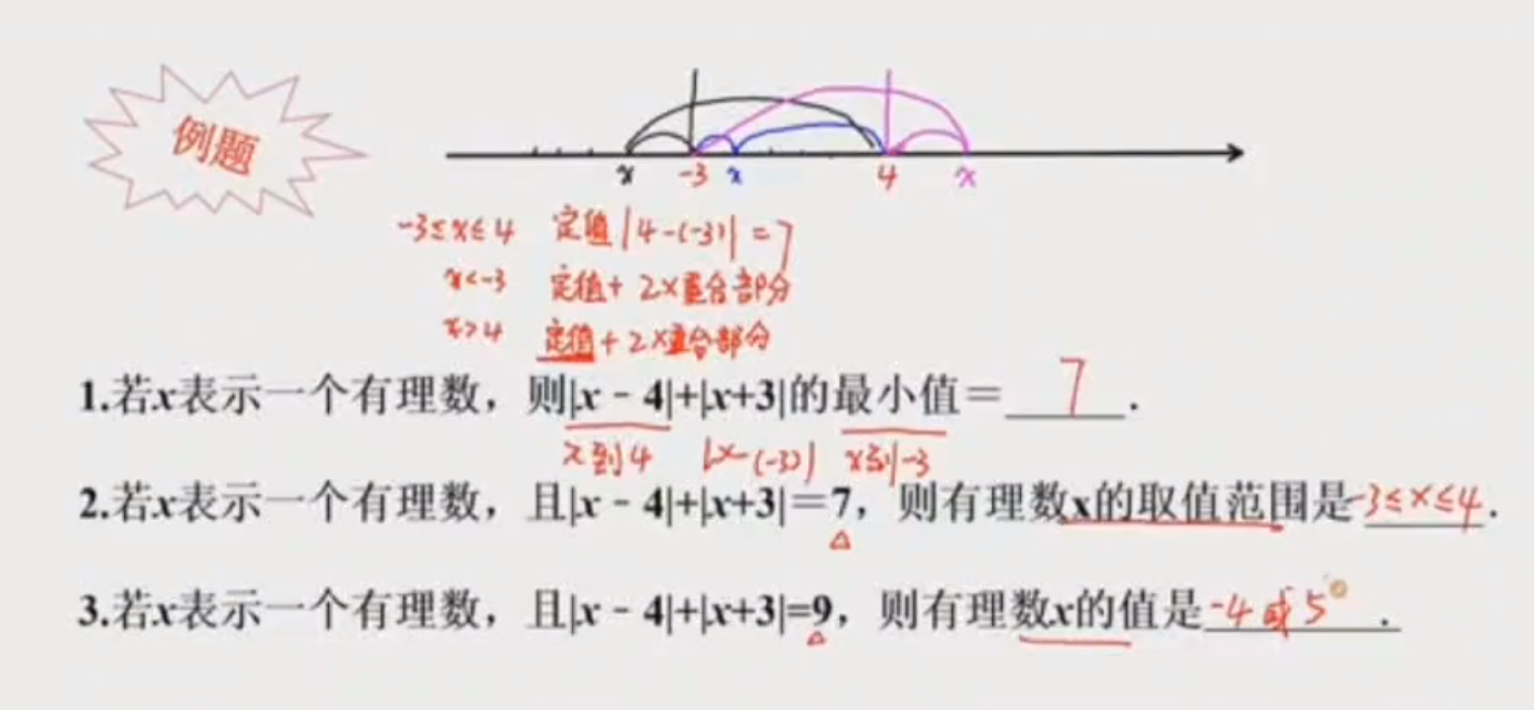 例题
x -3 x 4 x
-3≤x≤4 定值|4-(-3)|=7
x<-3 定值+2×重合部分
x>4 定值+2×重合部分
1.若x表示一个有理数，则|x-4|+|x+3|的最小值=7.
x到4 |x-(-3)| x到-3
2.若x表示一个有理数，且|x-4|+|x+3|=7，则有理数x的取值范围是-3≤x≤4.
3.若x表示一个有理数，且|x-4|+|x+3|=9，则有理数x的值是-4或5.